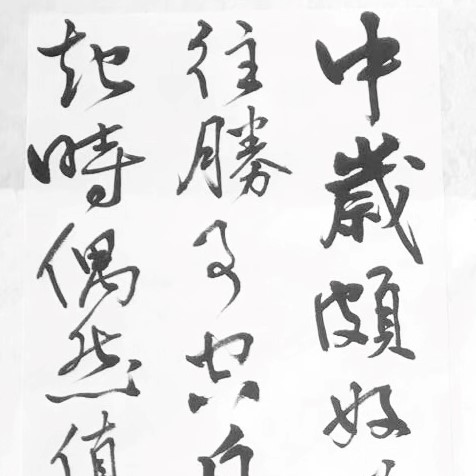 中歲頗好
往勝事空
起時偶然值